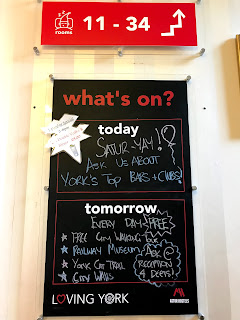 rooms
11 - 34
what's on?
today
SATUR-YAY!
ASK US ABOUT
YORK'S TOP BARS + CLUBS!
tomorrow
EVERY DAY - FREE
★ FREE CITY WALKING TOUR
★ RAILWAY MUSEUM
★ YORK CAT TRAIL
★ CITY WALLS
ASK
RECEPTION
4 DEETS!
LOVING YORK